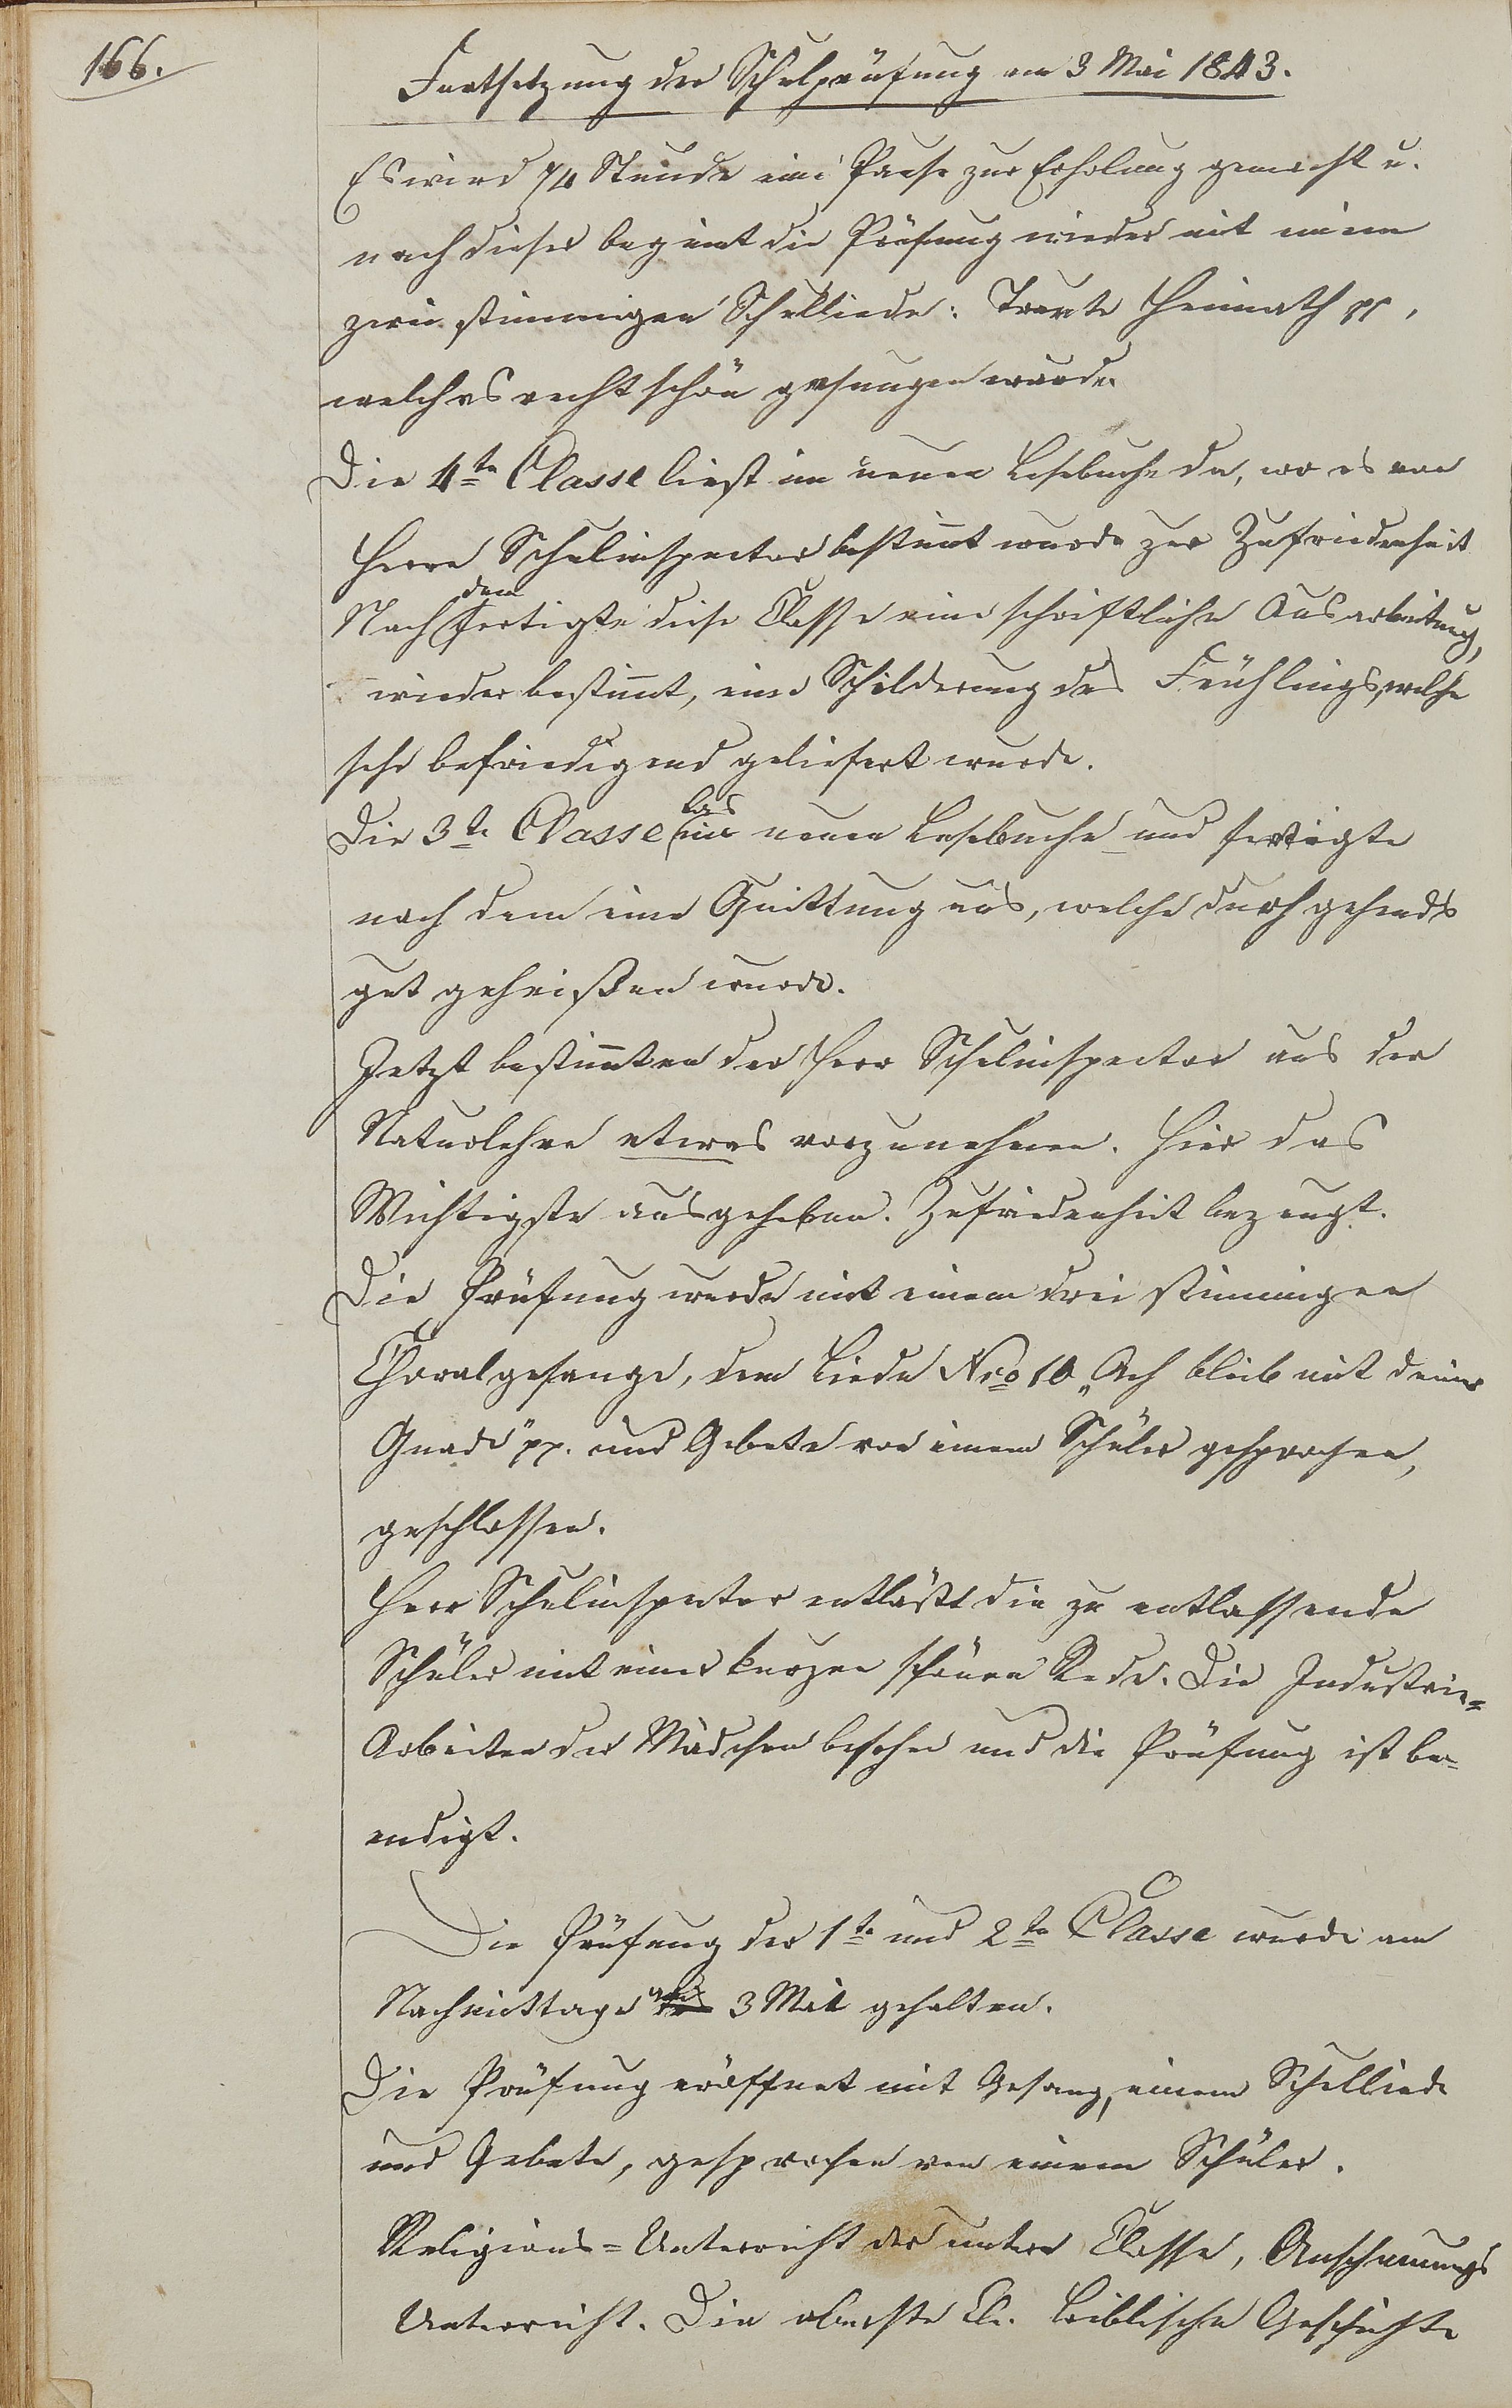 166.
Fortsetzung der Schulprüfung am 3 Mai 1843.
Es wird 1/4 Stunde eine Pause zur Erholung gemacht u.
nach dieser beginnt die Prüfung wieder mit einem
zwei stimmigen Schulliede: Traute Heimath pp,
welches recht schön gesungen wurde.
Die 4te Classe liest im neuen Lesebuche da, wo es von
Herrn Schulinspector bestimt wurde zur Zufriedenheit
Nach dem fertigte diese Classe eine schriftliche Ausarbeitung,
wieder bestimt, eine Schilderung des Frühlings, welche
sehr befriedigend geliefert wurde.
Die 3te Classe las im neuen Lesebuche und fertigte
nach dem eine Quittung aus, welche durchgehends
gut geheißen wurde.
Jetzt bestimten der Herr Schulinspector aus der
Naturlehre etwas vorzunehmen. Hier das
Wichtigste ausgehoben. Zufriedenheit bezeugt.
Die Prüfung wurde mit einem drei stimmigen
Choralgesange, dem Liede Nro 10 „Ach bleib mit deiner
Gnade" pp. und Gebete von einem Schüler gesprochen,
geschlossen.
Herr Schulinspector entläßt die zu entlassende
Schüler mit einer kurzen schönen Rede. Die Industrie=
Arbeiten der Mädchen besehen und die Prüfung ist be=
endigt.
Die Prüfung der 1te und 2te Classe wurde am
Nachmittage 3 Mai gehalten.
Die Prüfung eröffnet mit Gesang, einem Schulliede
und Gebete, gesprochen von einem Schüler.
Religions=Unterricht der untern Classe, Anschauungs
Unterricht. Die oberste Cl. biblische Geschichte